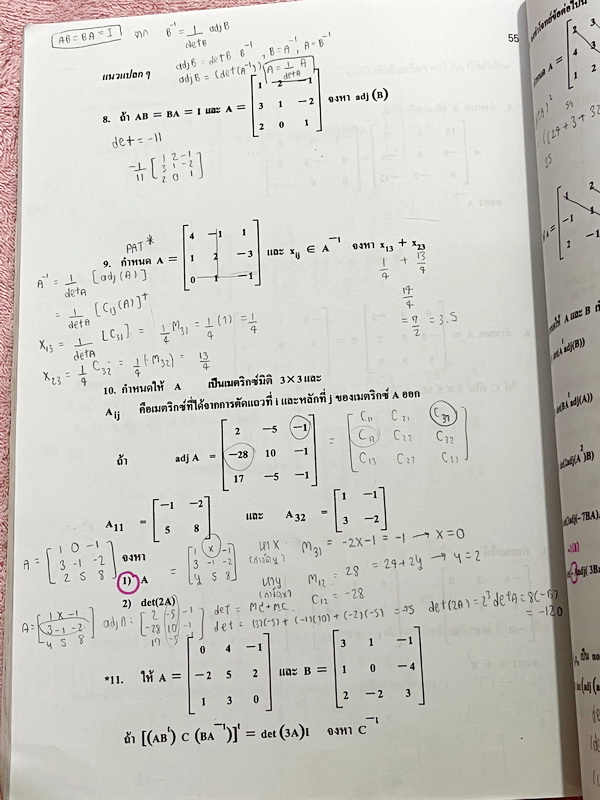 AB = BA = I จาก B⁻¹ = 1/detB adj B
adj B = det B B⁻¹, B = A⁻¹, A = B⁻¹
adj B = (det(A⁻¹)) A = 1/detA A
55
แนวแปลก ๆ
8. ถ้า AB = BA = I และ A = [1 2 −1; 3 1 −2; 2 0 1] จงหา adj (B)
det = −11
−1/11 [1 2 −1; 3 1 −2; 2 0 1]
PAT*
9. กำหนด A = [4 −1 1; 1 2 −3; 0 1 −1] และ x_ij ∈ A⁻¹ จงหา x₁₃ + x₂₃
A⁻¹ = 1/detA [adj(A)]
1/4 + 13/4
= 1/detA [C_ij(A)]ᵗ
14/4
= 7/2 = 3.5
x₁₃ = 1/detA [C₃₁] = 1/4 M₃₁ = 1/4 (1) = 1/4
x₂₃ = 1/4 C₃₂ = 1/4 (−M₃₂) = 13/4
10. กำหนดให้ A เป็นเมตริกซ์มิติ 3×3 และ
A_ij คือเมตริกซ์ที่ได้จากการตัดแถวที่ i และหลักที่ j ของเมตริกซ์ A ออก
ถ้า adj A = [2 −5 −1; −28 10 −1; 17 −5 −1] = [C₁₁ C₂₁ C₃₁; C₁₂ C₂₂ C₃₂; C₁₃ C₂₃ C₃₃]
A₁₁ = [−1 −2; 5 8] และ A₃₂ = [1 −1; 3 −2]
A = [1 0 −1; 3 −1 −2; 2 5 8] จงหา = [1 x −1; 3 −1 −2; y 5 8] หา x M₃₁ = −2x−1 = −1 → x = 0
1) A หา y M₁₂ = 28 = 24+2y → y = 2
2) det(2A) C₁₂ = −28
A = [1 x −1; 3 −1 −2; y 5 8] adj A = [2 −5 −1; −28 10 −1; 17 −5 −1] det = MC+MC
det = (3)(−5) + (−1)(10) + (−2)(−5) = −15 det(2A) = 2³ det A = 8(−15)
= −120
*11. ให้ A = [0 4 −1; −2 5 2; 1 3 0] และ B = [3 1 −1; 1 0 −4; 2 −2 3]
ถ้า [(ABᵗ) C (BA⁻¹)]ᵗ = det (3A)I จงหา C⁻¹